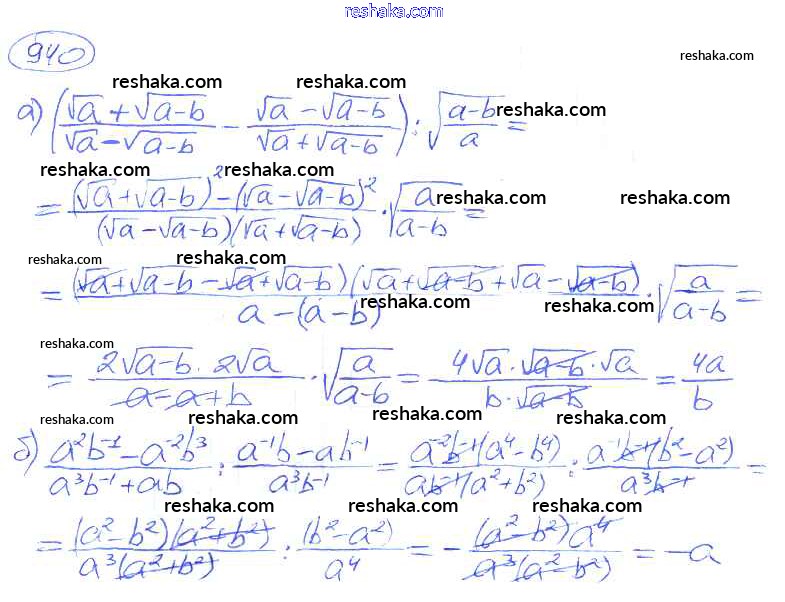 reshaka.com
940
reshaka.com
reshaka.com reshaka.com
а) ((√a + √(a-b))/(√a - √(a-b)) - (√a - √(a-b))/(√a + √(a-b))) : √((a-b)/a) =
reshaka.com
reshaka.com reshaka.com
= ((√a + √(a-b))² - (√a - √(a-b))²)/((√a - √(a-b))(√a + √(a-b))) · √(a/(a-b)) =
reshaka.com reshaka.com
reshaka.com reshaka.com
= ((√a + √(a-b) - √a + √(a-b))(√a + √(a-b) + √a - √(a-b)))/(a - (a-b)) · √(a/(a-b)) =
reshaka.com reshaka.com
reshaka.com
= (2√(a-b) · 2√a)/(a - a + b) · √(a/(a-b)) = (4√a · √(a-b) · √a)/(b · √(a-b)) = 4a/b
reshaka.com reshaka.com reshaka.com reshaka.com
б) (a²b⁻¹ - a⁻²b³)/(a³b⁻¹ + ab) : (a⁻¹b - ab⁻¹)/(a³b⁻¹) = (a⁻²b⁻¹(a⁴ - b⁴))/(ab⁻¹(a² + b²)) : (a⁻¹b⁻¹(b² - a²))/(a³b⁻¹) =
reshaka.com reshaka.com reshaka.com reshaka.com
= ((a² - b²)(a² + b²))/(a³(a² + b²)) : (b² - a²)/a⁴ = - ((a² - b²)a⁴)/(a³(a² - b²)) = -a